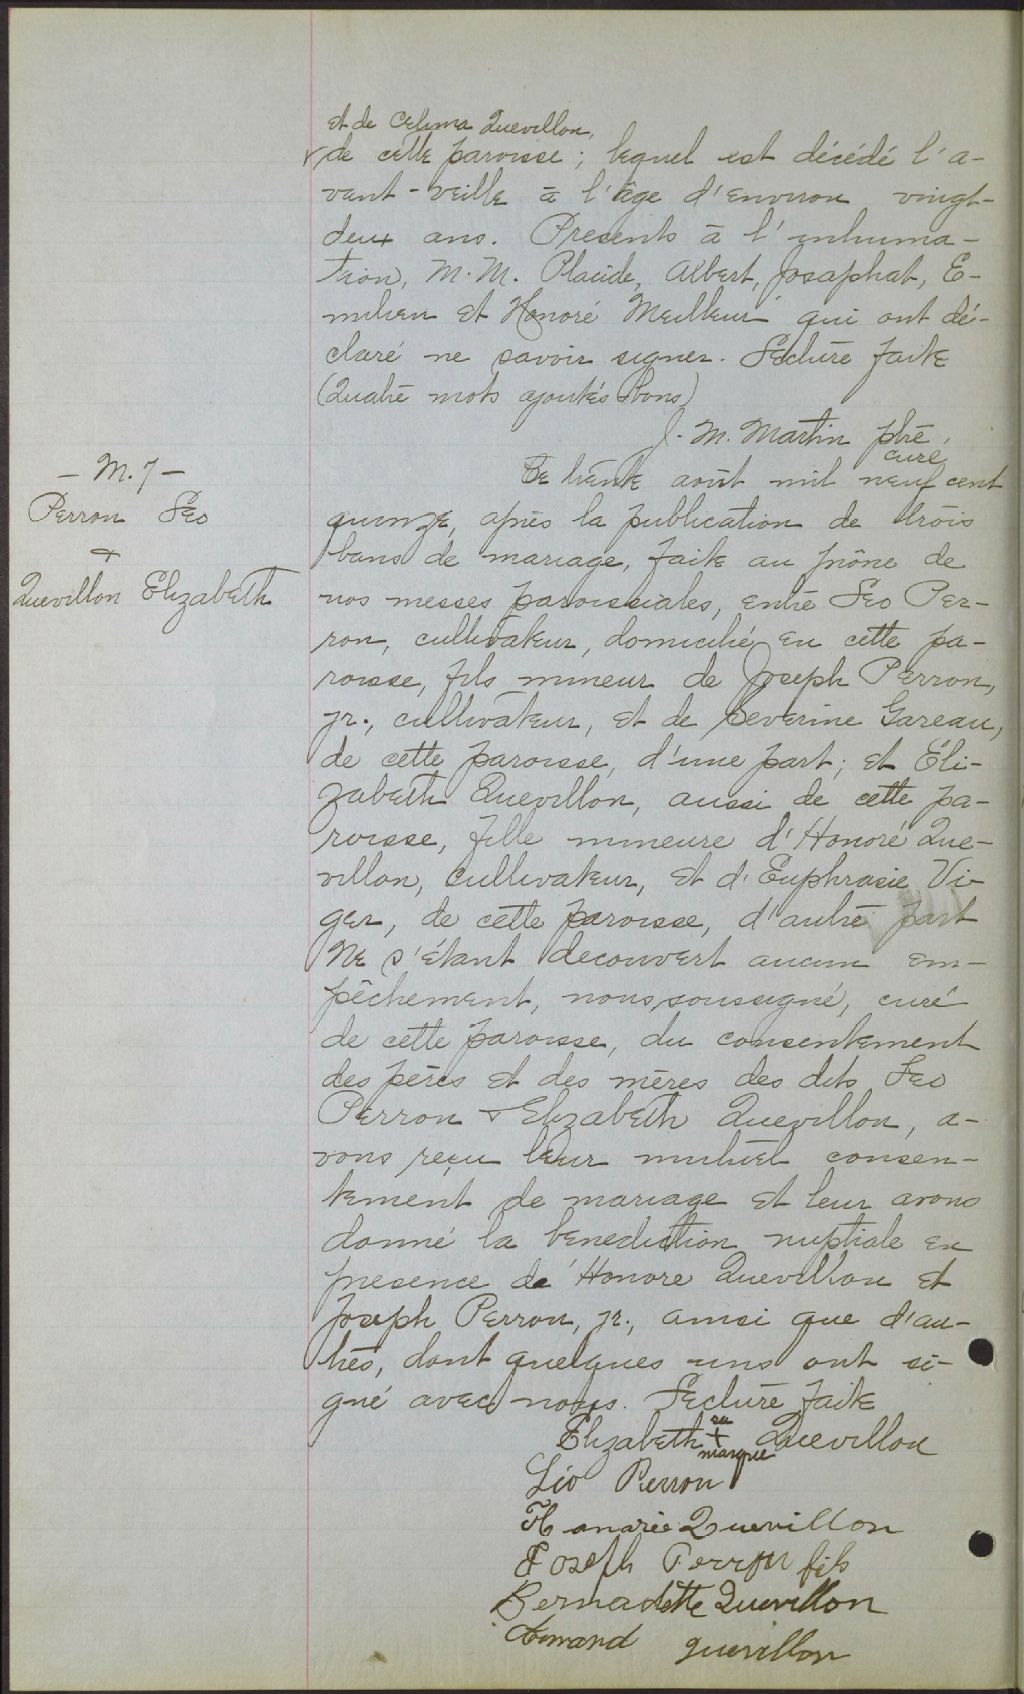 et de Célima Quevillon,
de cette paroisse; lequel est décédé l'a-
vant-veille à l'âge d'environ vingt-
deux ans. Presents à l'inhuma-
tion, M.M. Placide, Albert, Josaphat, E-
milien et Honoré Meilleur qui ont dé-
claré ne savoir signer. Lecture faite
(Quatre mots ajoutés bons)
J. M. Martin ptre,
curé
- M. 7 -
Perron Leo
&
Quevillon Elizabeth
Le trente août mil neuf cent
quinze, après la publication de trois
bans de mariage, faite au prône de
nos messes paroissiales, entre Leo Per-
ron, cultivateur, domicilié en cette pa-
roisse, fils mineur de Joseph Perron,
jr., cultivateur, et de Severine Gareau,
de cette paroisse, d'une part; et Éli-
zabeth Quevillon, aussi de cette pa-
roisse, fille mineure d'Honoré Que-
villon, cultivateur, et d'Euphrasie Vi-
ger, de cette paroisse, d'autre part
Ne s'étant decouvert aucun em-
pêchement, nous, soussigné, curé
de cette paroisse, du consentement
des pères et des mères des dits Leo
Perron & Elizabeth Quevillon, a-
vons reçu leur mutuel consen-
tement de mariage et leur avons
donné la benediction nuptiale en
presence de Honore Quevillon et
Joseph Perron, jr., ainsi que d'au-
tres, dont quelques-uns ont si-
gné avec nous. Lecture faite
Elizabeth sa + marque Quevillon
Léo Perron
Honorée Quevillon
Joseph Perron fils
Bernadette Quevillon
Armand quevillon